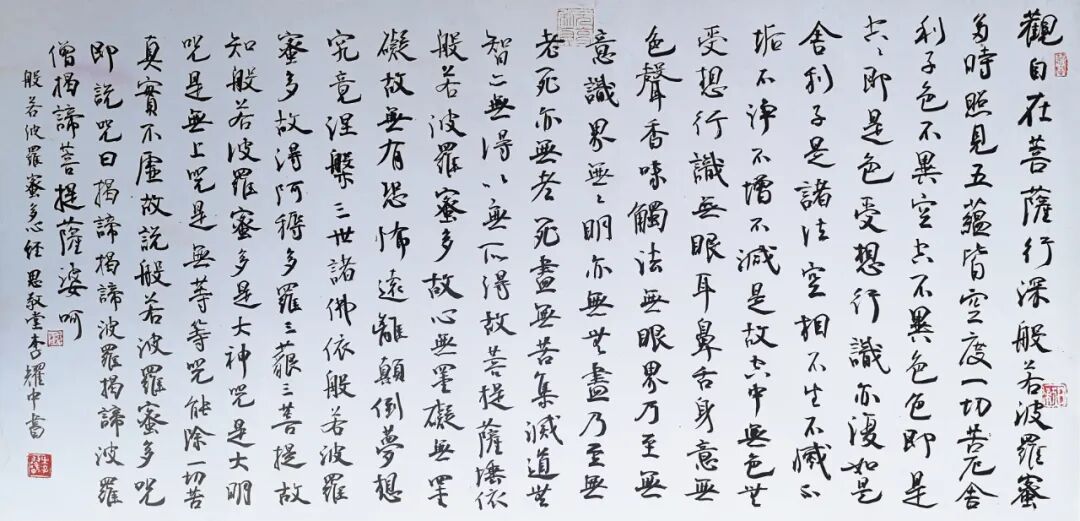 觀自在菩薩行深般若波羅蜜
多時照見五蘊皆空度一切苦厄舍
利子色不異空空不異色色即是
空〻即是色受想行識亦復如是
舍利子是諸法空相不生不滅不
垢不淨不增不減是故空中無色無
受想行識無眼耳鼻舌身意無
色聲香味觸法無眼界乃至無
意識界無〻明亦無無明盡乃至無
老死亦無老死盡無苦集滅道無
智亦無得以無所得故菩提薩埵依
般若波羅蜜多故心無罣礙無罣
礙故無有恐怖遠離顛倒夢想
究竟涅槃三世諸佛依般若波羅
蜜多故得阿耨多羅三藐三菩提故
知般若波羅蜜多是大神咒是大明
咒是無上咒是無等等咒能除一切苦
真實不虛故說般若波羅蜜多咒
即說咒曰揭諦揭諦波羅揭諦波羅
僧揭諦菩提薩婆呵
般若波羅蜜多心經 思敬堂李耀中書